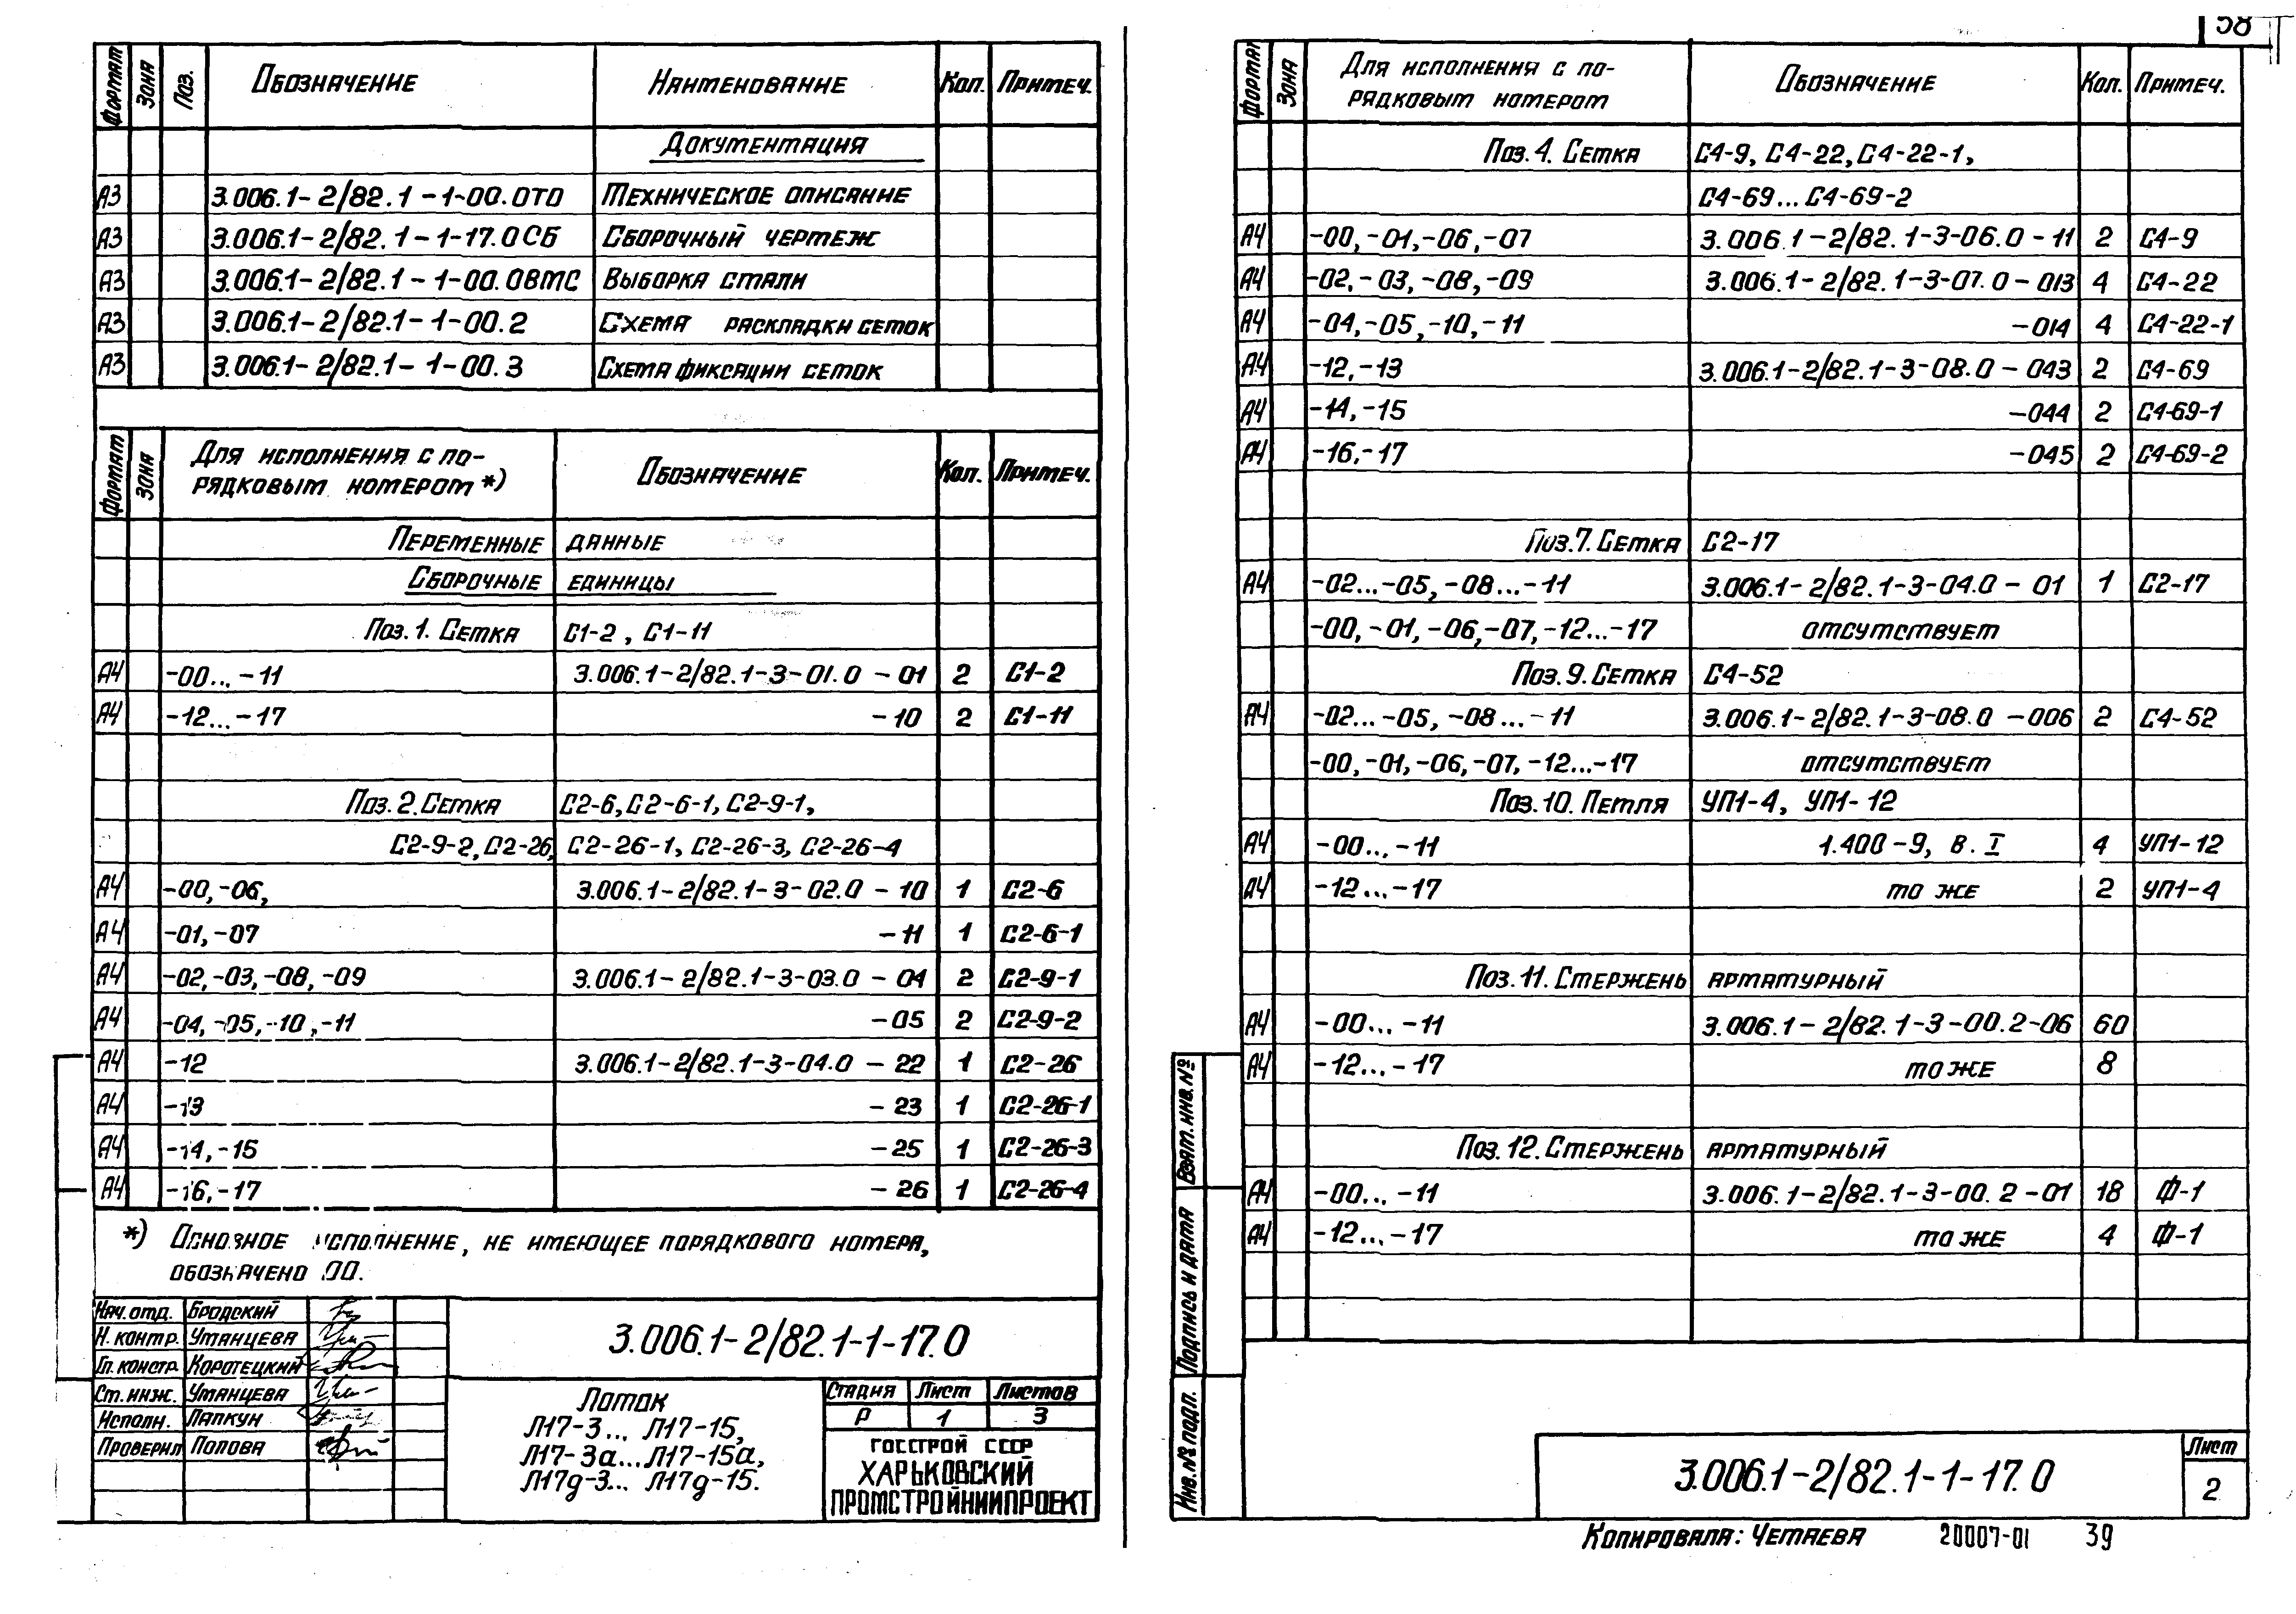 Формат Зона Поз. Обозначение Наименование Кол. Примеч.
Документация
А3 3.006.1-2/82.1-1-00.0ТО Техническое описание
А3 3.006.1-2/82.1-1-17.0СБ Сборочный чертеж
А3 3.006.1-2/82.1-1-00.0ВМС Выборка стали
А3 3.006.1-2/82.1-1-00.2 Схема раскладки сеток
А3 3.006.1-2/82.1-1-00.3 Схема фиксации сеток
Формат Зона Для исполнения с по-
рядковым номером *) Обозначение Кол. Примеч.
Переменные данные
Сборочные единицы
Поз. 1. Сетка С1-2, С1-11
А4 -00...-11 3.006.1-2/82.1-3-01.0-01 2 С1-2
А4 -12...-17 -10 2 С1-11
Поз. 2. Сетка С2-6, С2-6-1, С2-9-1,
С2-9-2, С2-26, С2-26-1, С2-26-3, С2-26-4
А4 -00, -06, 3.006.1-2/82.1-3-02.0-10 1 С2-6
А4 -01, -07 -11 1 С2-6-1
А4 -02, -03, -08, -09 3.006.1-2/82.1-3-03.0-04 2 С2-9-1
А4 -04, -05, -10, -11 -05 2 С2-9-2
А4 -12 3.006.1-2/82.1-3-04.0-22 1 С2-26
А4 -13 -23 1 С2-26-1
А4 -14, -15 -25 1 С2-26-3
А4 -16, -17 -26 1 С2-26-4
*) Основное исполнение, не имеющее порядкового номера,
обозначено 00.
Нач. отд. Бродский
Н. контр. Уманцева
Гл. констр. Коротецкий
Ст. инж. Уманцева
Исполн. Лапкун
Проверил Попова
3.006.1-2/82.1-1-17.0
Лоток
Л17-3... Л17-15,
Л17-3а...Л17-15а,
Л17д-3... Л17д-15.
Стадия Лист Листов
Р 1 3
ГОССТРОЙ СССР
ХАРЬКОВСКИЙ
ПРОМСТРОЙНИИПРОЕКТ
58
Формат Зона Для исполнения с по-
рядковым номером Обозначение Кол. Примеч.
Поз. 4. Сетка С4-9, С4-22, С4-22-1,
С4-69...С4-69-2
А4 -00, -01, -06, -07 3.006.1-2/82.1-3-06.0-11 2 С4-9
А4 -02, -03, -08, -09 3.006.1-2/82.1-3-07.0-013 4 С4-22
А4 -04, -05, -10, -11 -014 4 С4-22-1
А4 -12, -13 3.006.1-2/82.1-3-08.0-043 2 С4-69
А4 -14, -15 -044 2 С4-69-1
А4 -16, -17 -045 2 С4-69-2
Поз. 7. Сетка С2-17
А4 -02...-05, -08...-11 3.006.1-2/82.1-3-04.0-01 1 С2-17
-00, -01, -06, -07, -12...-17 отсутствует
Поз. 9. Сетка С4-52
А4 -02...-05, -08...-11 3.006.1-2/82.1-3-08.0-006 2 С4-52
-00, -01, -06, -07, -12...-17 отсутствует
Поз. 10. Петля УП1-4, УП1-12
А4 -00...-11 1.400-9, в. I 4 УП1-12
А4 -12...-17 то же 2 УП1-4
Поз. 11. Стержень арматурный
А4 -00...-11 3.006.1-2/82.1-3-00.2-06 60
А4 -12...-17 то же 8
Поз. 12. Стержень арматурный
А4 -00...-11 3.006.1-2/82.1-3-00.2-01 18 Ф-1
А4 -12...-17 то же 4 Ф-1
Взам. инв. №
Подпись и дата
Инв. № подл.
3.006.1-2/82.1-1-17.0
Лист
2
Копировала: Четаева 20007-01 39